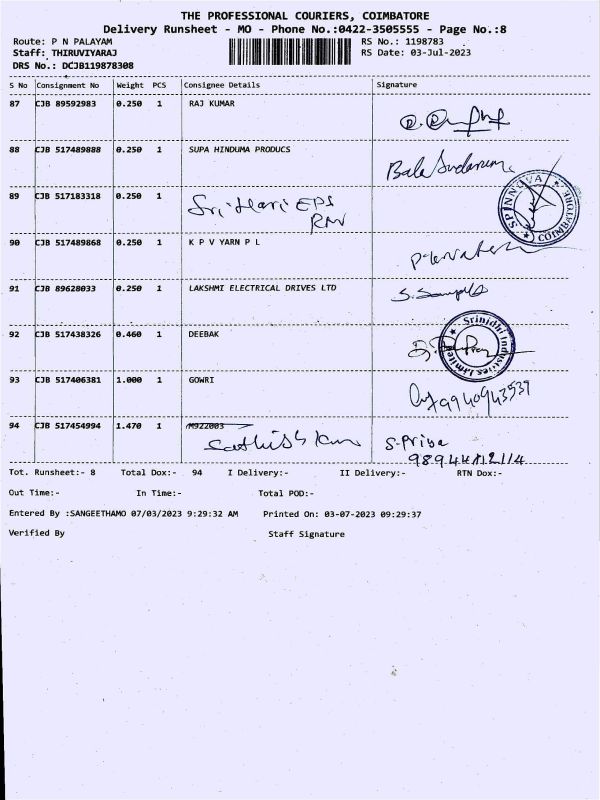 THE PROFESSIONAL COURIERS, COIMBATORE
Delivery Runsheet - MO - Phone No.:0422-3505555 - Page No.:8
Route: P N PALAYAM RS No.: 1198783
Staff: THIRUVIYARAJ RS Date: 03-Jul-2023
DRS No.: DCJB119878308
S No Consignment No Weight PCS Consignee Details Signature
87 CJB 89592983 0.250 1 RAJ KUMAR
88 CJB 517489888 0.250 1 SUPA HINDUMA PRODUCS
Bala
SP INNOVA COIMBATORE
89 CJB 517183318 0.250 1 Sri Hari EPS
90 CJB 517489868 0.250 1 K P V YARN P L
91 CJB 89628033 0.250 1 LAKSHMI ELECTRICAL DRIVES LTD
92 CJB 517438326 0.460 1 DEEBAK
Srinidhi Industries Limited
93 CJB 517406381 1.000 1 GOWRI
9940943539
94 CJB 517454994 1.470 1 M922003
Sathish Kumar S. Priya
Tot. Runsheet:- 8 Total Dox:- 94 I Delivery:- II Delivery:- RTN Dox:-
Out Time:- In Time:- Total POD:-
Entered By :SANGEETHAMO 07/03/2023 9:29:32 AM Printed On: 03-07-2023 09:29:37
Verified By Staff Signature